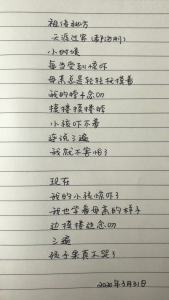 祖传秘方
天涯过客
小时候
每当受到惊吓
母亲总是轻轻抚摸着
我的脖子念叨
摸摸摸摸脖
小孩吓不着
连说三遍
我就不害怕了
现在
我的小孩惊吓了
我也学着母亲的样子
边摸摸边念叨
三遍
孩子果真不哭了
2020年3月31日